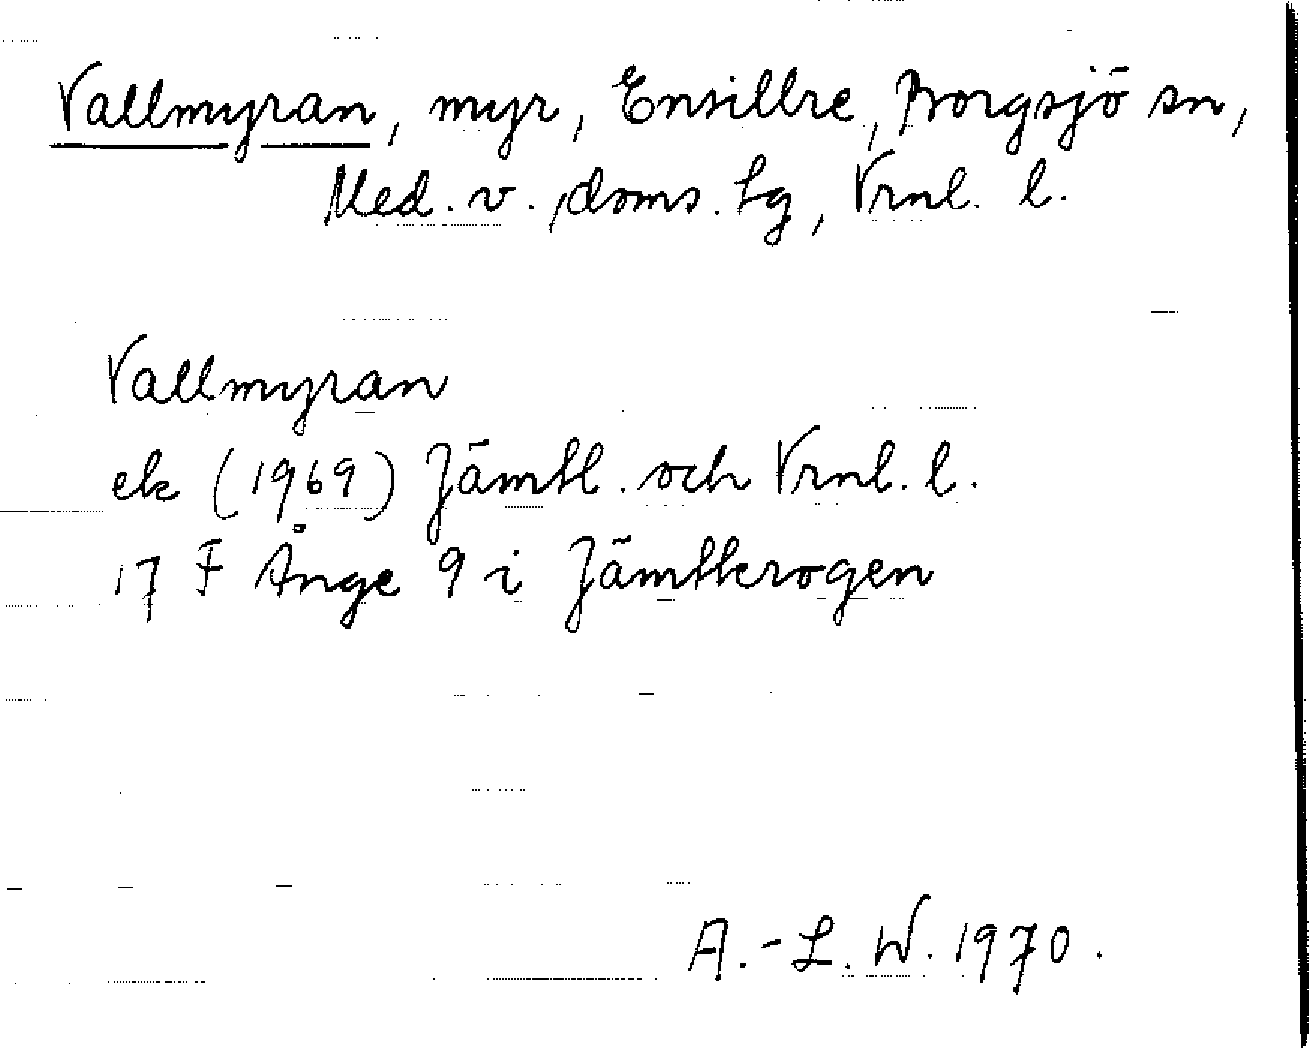 Vallmyran, myr, Ensillre, Borgsjö sn,
Med. v. doms. lg, Vrnl. l.
Vallmyran
ek (1969) Jämtl. och Vrnl. l.
17 F Ånge 9 i Jämtkrogen
A.-L. W. 1970.